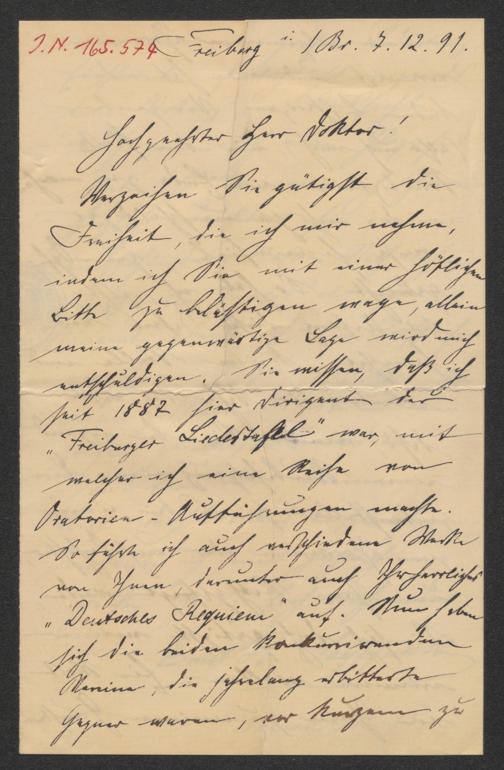 J.N. 165.574 Freiburg i/Br. 7.12.91.
Hochgeehrter Herr Doktor!
Verzeihen Sie gütigst die
Freiheit, die ich mir nehme,
indem ich Sie mit einer höflichen
Bitte zu belästigen wage, allein
meine gegenwärtige Lage wird mich
entschuldigen. Sie wissen, daß ich
seit 1887 hier Dirigent der
„Freiburger Liedertafel" war, mit
welcher ich eine Reihe von
Oratorien-Aufführungen machte.
So führte ich auch verschiedene Werke
von Ihnen, darunter auch Ihr herrliches
„Deutsches Requiem" auf. Nun haben
sich die beiden konkurrirenden
Vereine, die jahrelang erbitterte
Gegner waren, vor Kurzem zu